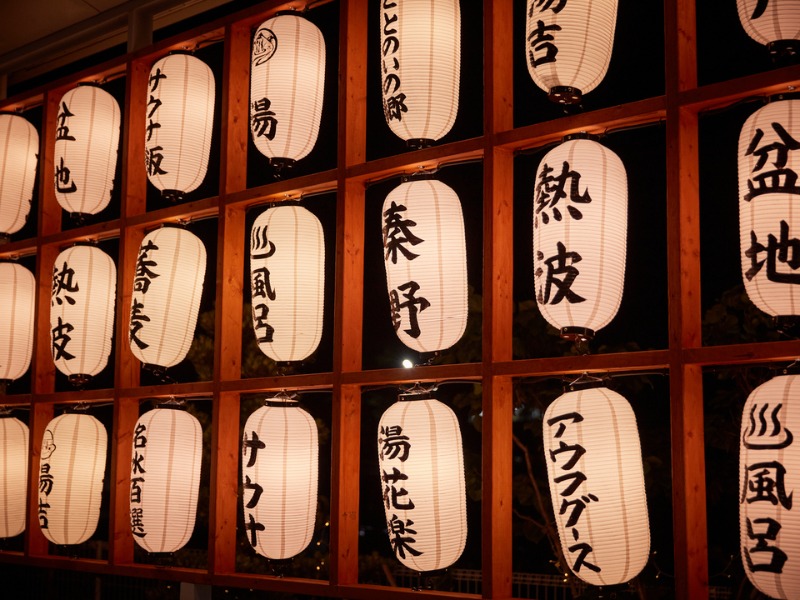 盆地
サウナ飯
湯
ととのいの郷
湯吉
熱波
蕎麦
♨風呂
秦野
熱波
盆地
湯吉
名水百選
サウナ
湯花楽
アウフグース
♨風呂